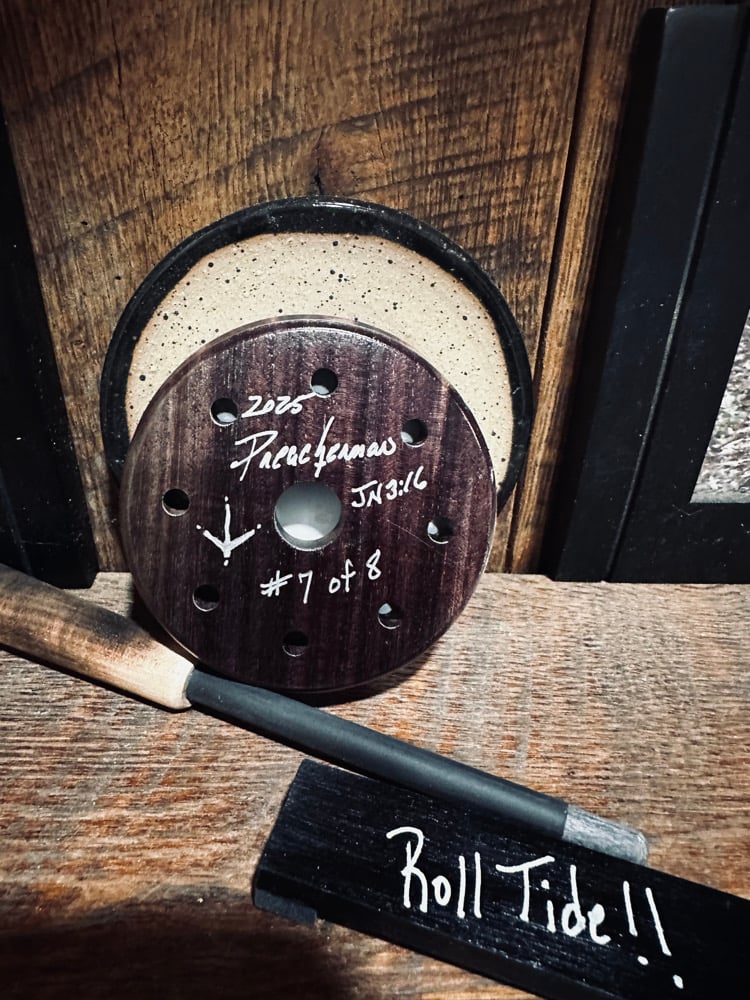 2025
Preacherman
JN 3:16
#7 of 8
Roll Tide!!